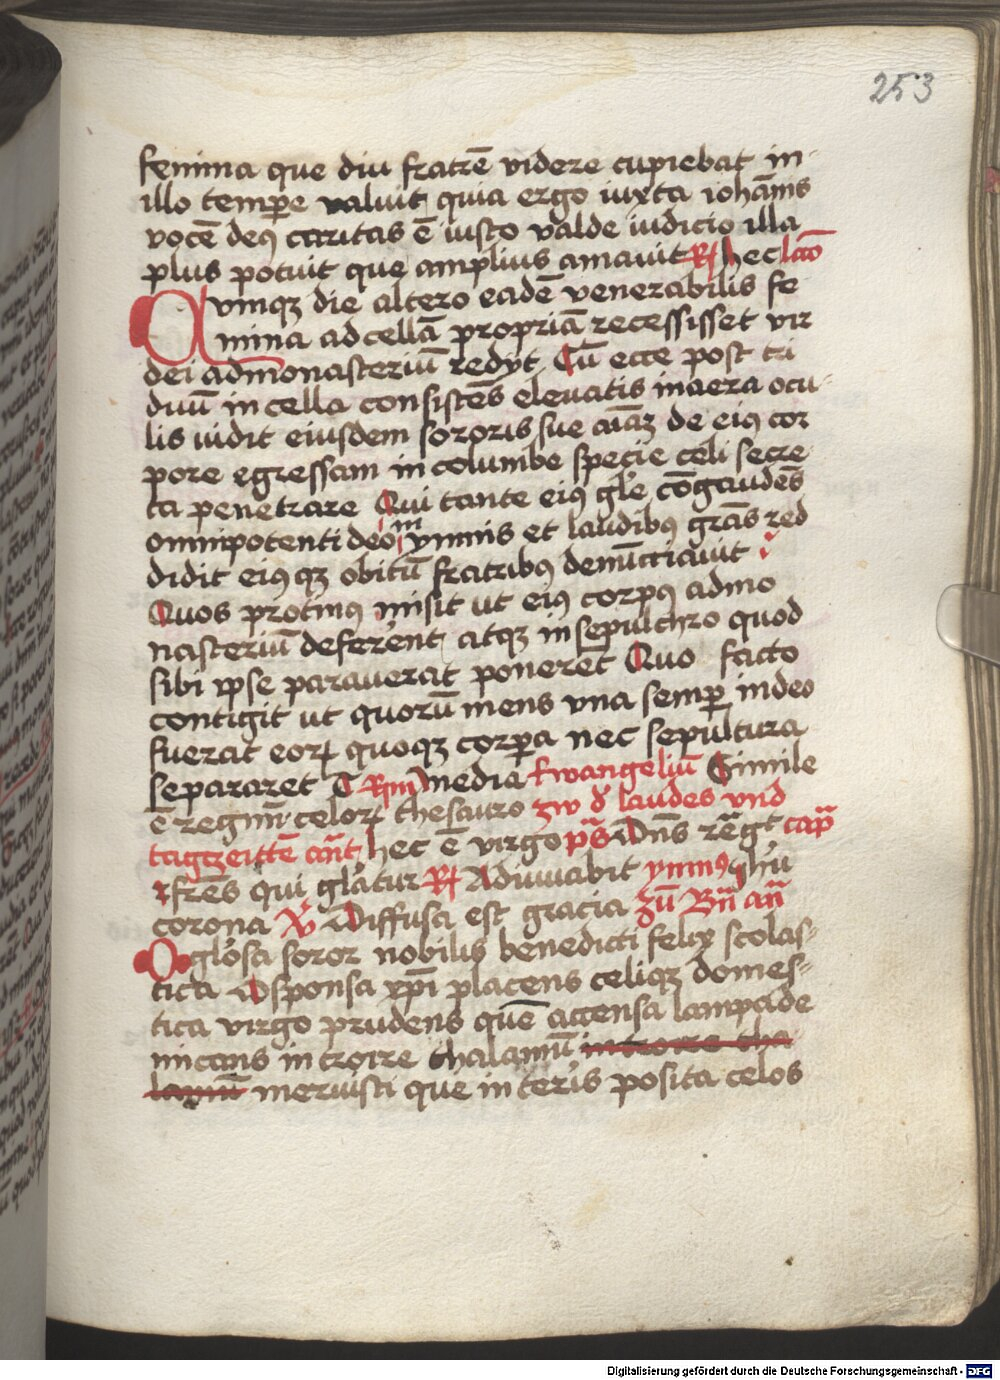 253
femina que diu fratrē videre cupiebat in
illo tempore valuit quia ergo iuxta iohānis
vocē deꝰ caritas ē iusto valde iudicio illa
plus potuit que amplius amauit R hec lcō
Qvmqꝫ die altero eadē venerabilis fe
mina ad cellā propriā recessisset vir
dei ad monasteriū redyt Cū ecce post tri
duū in cella consistēs eleuatis in aera ocu
lis uidit eiusdem sororis sue aīaꝫ de eiꝰ cor
pore egressam in columbe specie celi secre
ta penetrare Qui tante eiꝰ glē cōgaudēs
omnipotenti deo in ymnis et laudibꝰ grās red
didit eiꝰ qꝫ obitū fratribꝰ denūcciauit
Quos protinꝰ misit ut eiꝰ corpꝰ ad mo
nasteriū deferēnt atqꝫ in sepulchro quod
sibi ypse parauerat ponerēt Quo facto
contigit ut quorū mens vna semper in deo
fuerat eoꝝ quoqꝫ corpora nec sepultura
separaret media Ewangeliū Simile
ē regnū celoꝝ thesauro zw d laudes vnd
tagzeittē ant hec ē virgo pš Dns regt cap
frēs qui glātur R Adiuuabit ymnꝰ ihu
corona V Diffusa est gracia zū Bn̄ an̄
O glōsa soror nobilis benedicti felix scolas-
tica sponsa xp̄i placens celiqꝫ domes-
tica virgo prudens quē accensa lampade
micans introire thalamū introire tha
lamū meruisti que in terris posita celos
Digitalisierung gefördert durch die Deutsche Forschungsgemeinschaft - DFG